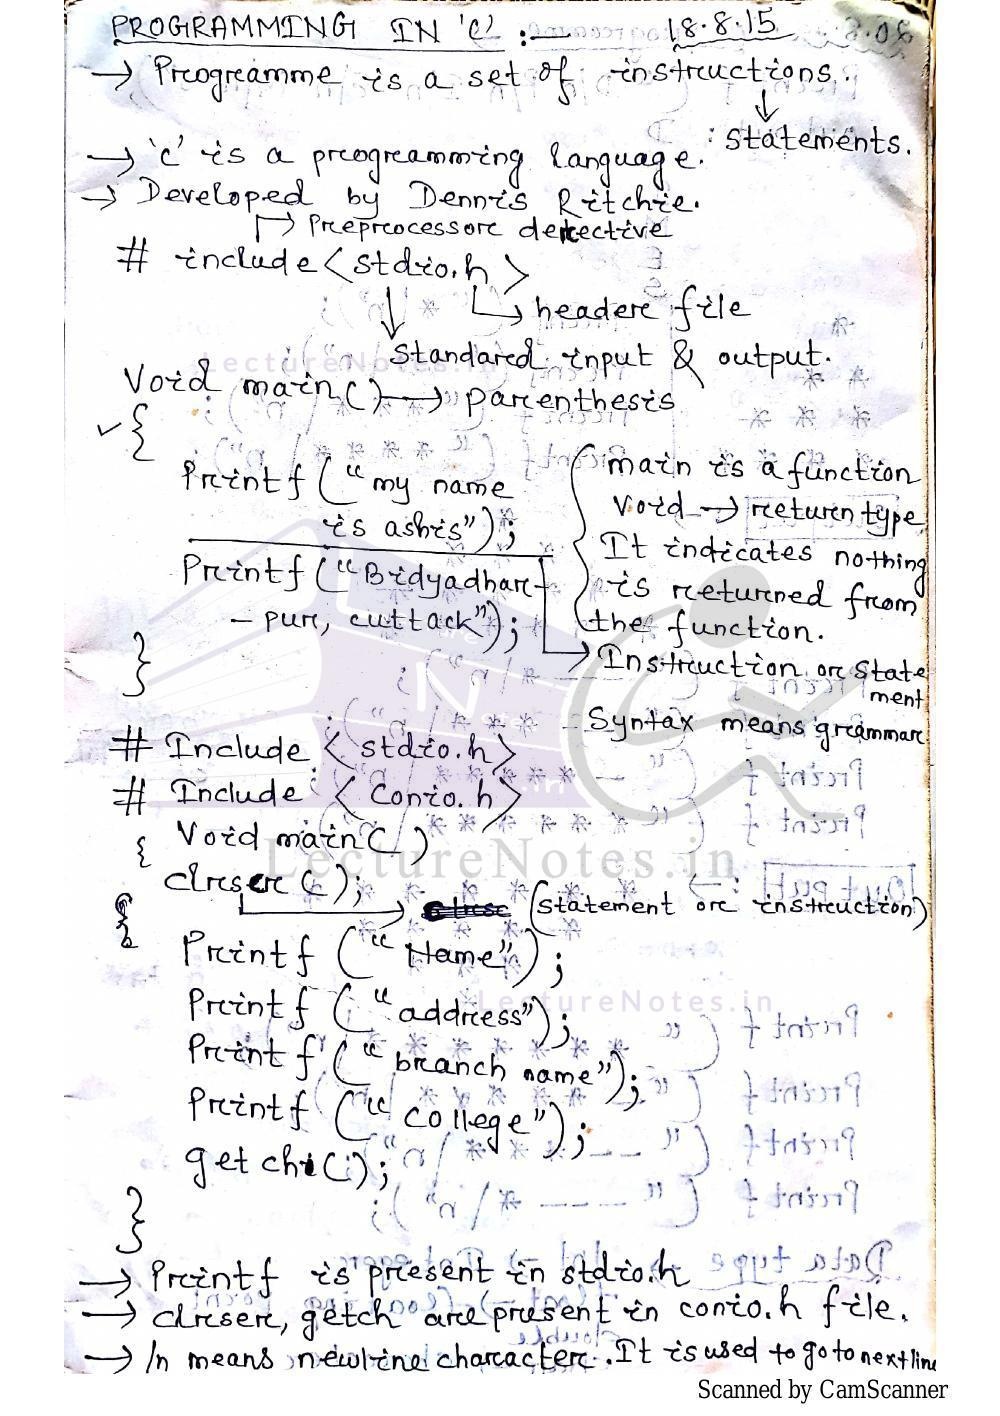 PROGRAMMING IN 'C' : 18.8.15
→ Programme is a set of instructions.
↓
: statements.
→ 'C' is a programming language.
→ Developed by Dennis Ritchie.
→ Preprocessor derective
# include <stdio.h>
→ header file
Standard input & output.
Void main() → parenthesis
{
Printf ("my name
is ashis");
Printf ("Bidyadhar
- pur, cuttack");
}
main is a function
Void → return type
It indicates nothing
is returned from
the function.
→ Instruction or state
ment
Syntax means grammar
# Include <stdio.h>
# Include <Conio.h>
{ Void main()
clrscr();
→ (statement or instruction)
{
Printf ("Name");
Printf ("address");
Printf ("branch name");
Printf ("college");
getch();
}
→ Printf is present in stdio.h
→ clrscr, getch are present in conio.h file.
→ /n means newline character. It is used to go to next line
LectureNotes.in
LectureNotes.in
LectureNotes.in
Scanned by CamScanner